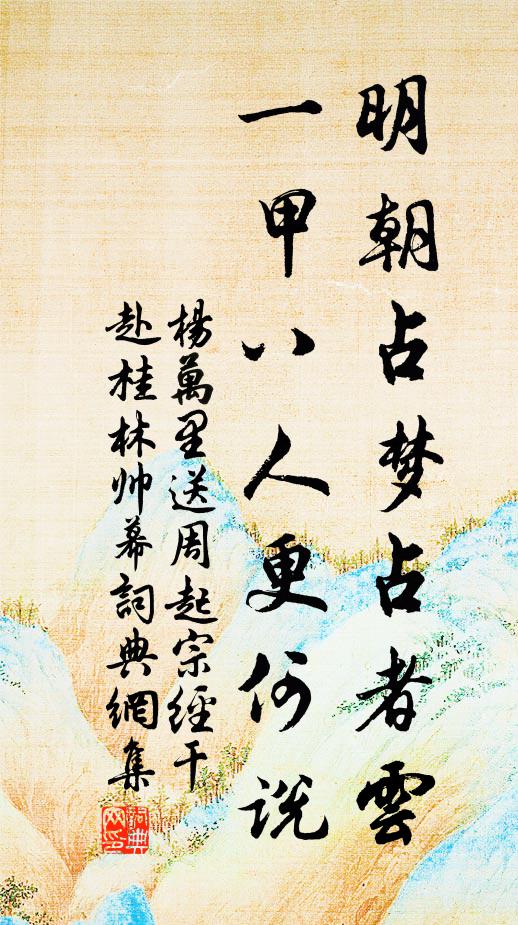 明朝占梦占者雲
一甲八人更何說
楊萬里送周起宗經干
赴桂林帅幕詞典網集
詞典
网印